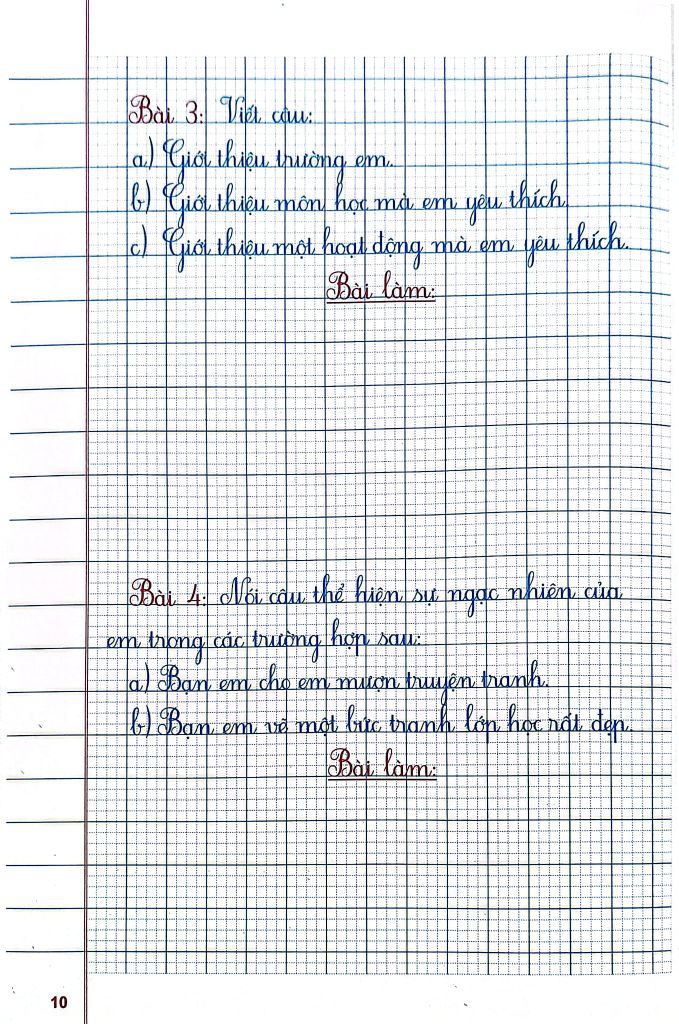 Bài 3: Viết câu:
a) Giới thiệu trường em.
b) Giới thiệu môn học mà em yêu thích.
c) Giới thiệu một hoạt động mà em yêu thích.
Bài làm:
Bài 4: Nói câu thể hiện sự ngạc nhiên của
em trong các trường hợp sau:
a) Bạn em cho em mượn truyện tranh.
b) Bạn em vẽ một bức tranh lớp học rất đẹp.
Bài làm:
10